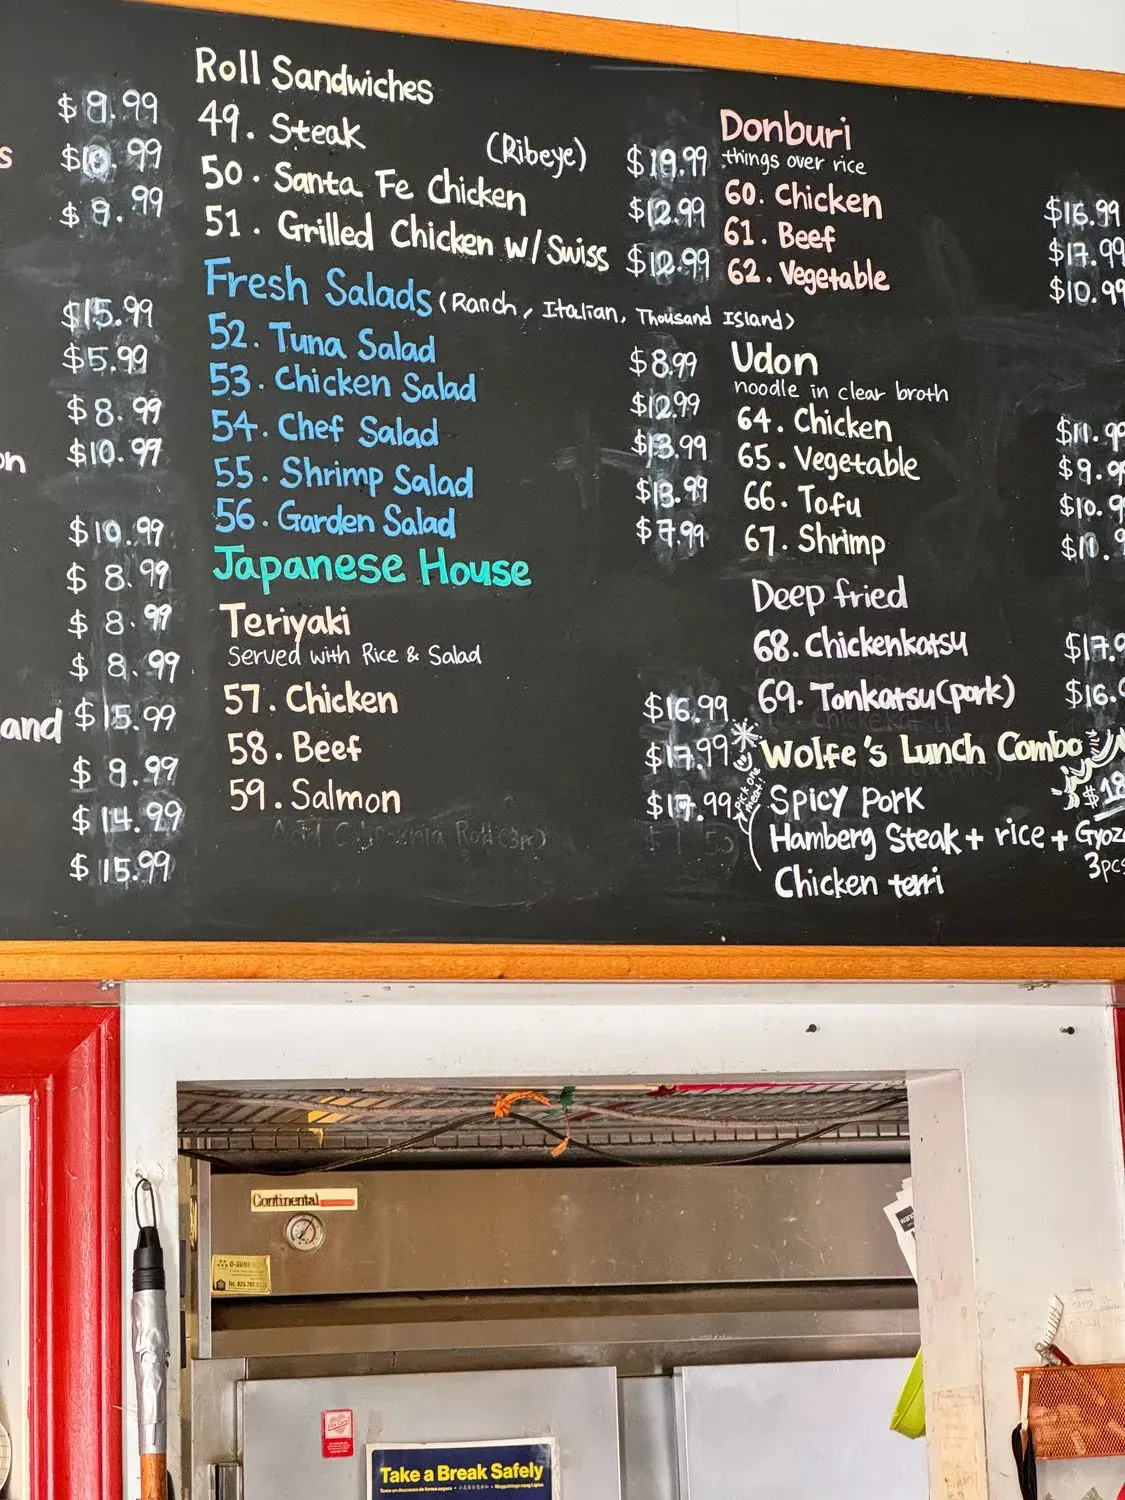 $9.99
s $10.99
$9.99
$15.99
$5.99
$8.99
on $10.99
$10.99
$8.99
$8.99
$8.99
and $15.99
$9.99
$14.99
$15.99
Roll Sandwiches
49. Steak (Ribeye) $19.99
50. Santa Fe Chicken $12.99
51. Grilled Chicken w/Swiss $12.99
Fresh Salads (Ranch, Italian, Thousand Island)
52. Tuna Salad $8.99
53. Chicken Salad $12.99
54. Chef Salad $13.99
55. Shrimp Salad $13.99
56. Garden Salad $7.99
Japanese House
Teriyaki
Served with Rice & Salad
57. Chicken $16.99
58. Beef $17.99
59. Salmon $17.99
Donburi
things over rice
60. Chicken $16.99
61. Beef $17.99
62. Vegetable $10.99
Udon
noodle in clear broth
64. Chicken
65. Vegetable
66. Tofu
67. Shrimp
Deep fried
68. Chickenkatsu
69. Tonkatsu(pork)
Wolfe's Lunch Combo $18
Pick one meat!
Spicy pork
Hamberg Steak + rice + Gyoza
3pcs
Chicken terri
Continental
Take a Break Safely